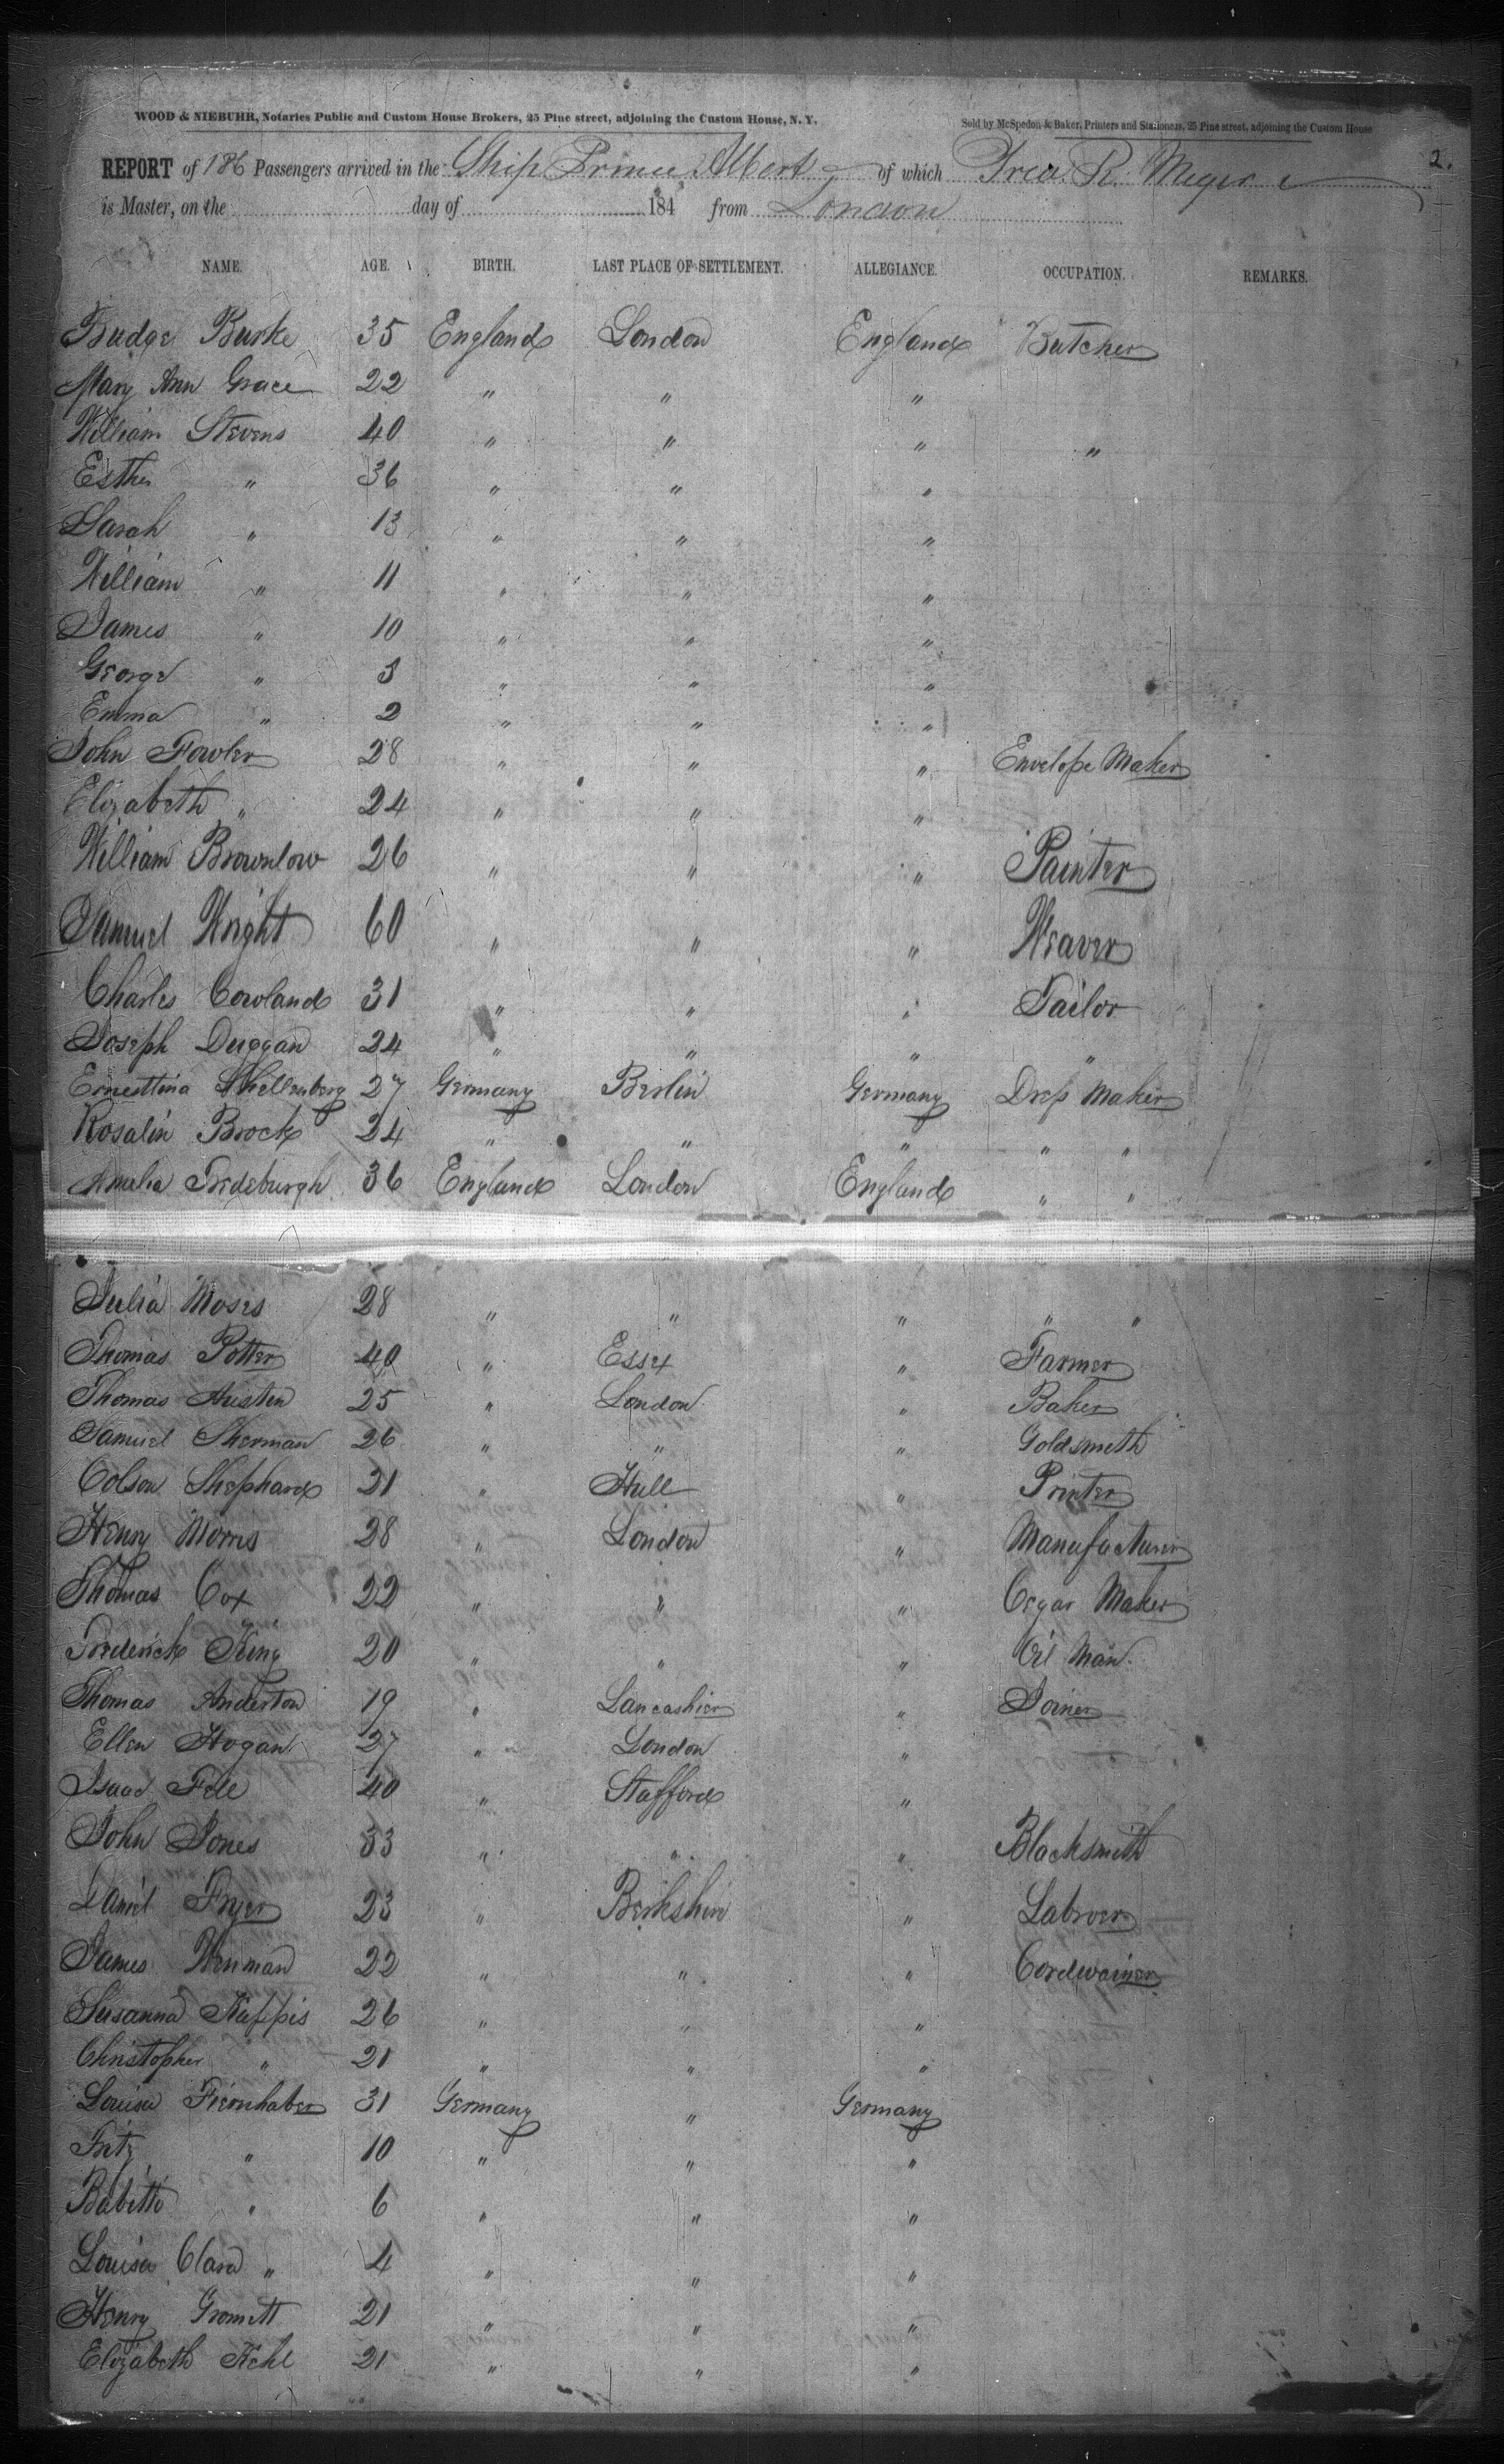 WOOD & NIEBUHR, Notaries Public and Custom House Brokers, 25 Pine street, adjoining the Custom House, N. Y.
Sold by McSpedon & Baker, Printers and Stationers, 25 Pine street, adjoining the Custom House
2.
REPORT of 186 Passengers arrived in the Ship Prince Albert of which Fred. R. Meyer
is Master, on the day of 184 from London
NAME. AGE. BIRTH. LAST PLACE OF SETTLEMENT. ALLEGIANCE. OCCUPATION. REMARKS.
Burke 35 England London England Butcher
Mary Ann Grace 22 " " "
William Stevens 40 " " " "
Esther " 36 " " "
Sarah " 13 " " "
William " 11 " " "
James " 10 " " "
George " 3 " " "
Emma " 2 " " "
John Fowler 28 " " " Envelope Maker
Elizabeth " 24 " " "
William Brownlow 26 " " " Painter
Samuel Wright 60 " " " Weaver
Charles Cowland 31 " " " Tailor
Joseph Duggan 24 " " " "
Ernesttina Shellenberg 27 Germany Berlin Germany Dress Maker
Rosalin Brock 24 " " " " "
Amalia Fredeburgh 36 England London England " "
Julia Moses 28 " " " " "
Thomas Potter 40 " Essex " Farmer
Thomas Austen 25 " London " Baker
Samuel Sherman 26 " " " Goldsmith
Colson Shephard 21 " Hull " Printer
Henry Morris 28 " London " Manufacturer
Thomas Cox 22 " " " Cegar Maker
Frederick King 20 " " " Oil Man
Thomas Anderton 19 " Lancashier " Joiner
Ellen Hogan 27 " London "
Isaac Fell 40 " Stafford "
John Jones 33 " " " Blacksmith
Daniel Fryer 23 " Berkshire " Labroer
James Wenman 22 " " " Cordwainer
Susanna Kappis 26 " " "
Christopher " 21 " " "
Louisa Fiernhaber 31 Germany " Germany
Fritz " 10 " " "
Babitte " 6 " " "
Louisa Clara " 4 " " "
Henry Gromett 21 " " "
Elizabeth Kehl 21 " " "